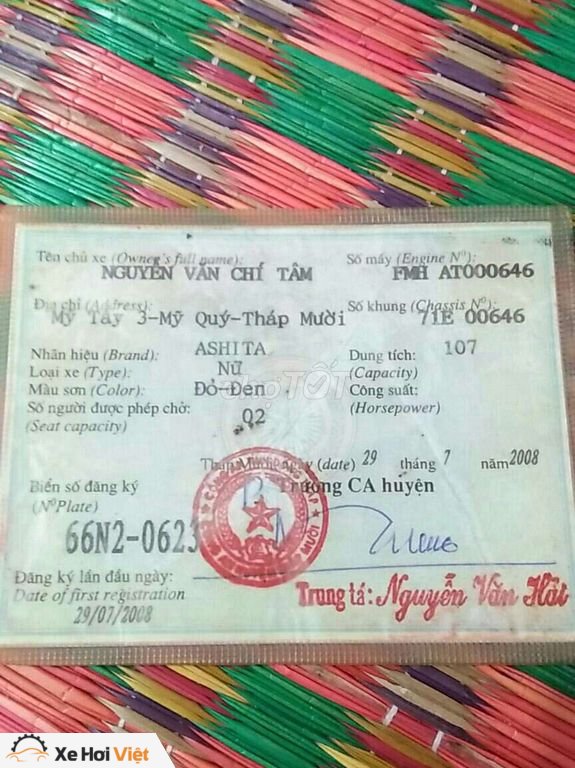 Tên chủ xe (Owner's full name):
NGUYỄN VĂN CHÍ TÂM
Số máy (Engine Nº):
FMH AT000646
Địa chỉ (Address):
Mỹ Tây 3-Mỹ Quý-Tháp Mười
Số khung (Chassis Nº):
71E 00646
Nhãn hiệu (Brand): ASHITA
Dung tích: 107
(Capacity)
Loại xe (Type): Nữ
Màu sơn (Color): Đỏ-Đen
Công suất:
(Horsepower)
Số người được phép chở: 02
(Seat capacity)
Tháp Mười ngày (date) 29 tháng 7 năm 2008
Trưởng CA huyện
Biển số đăng ký
(NºPlate)
66N2-0623
Đăng ký lần đầu ngày:
Date of first registration
29/07/2008
Trung tá: Nguyễn Văn Hát
Chợ TỐT
Xe Hơi Việt